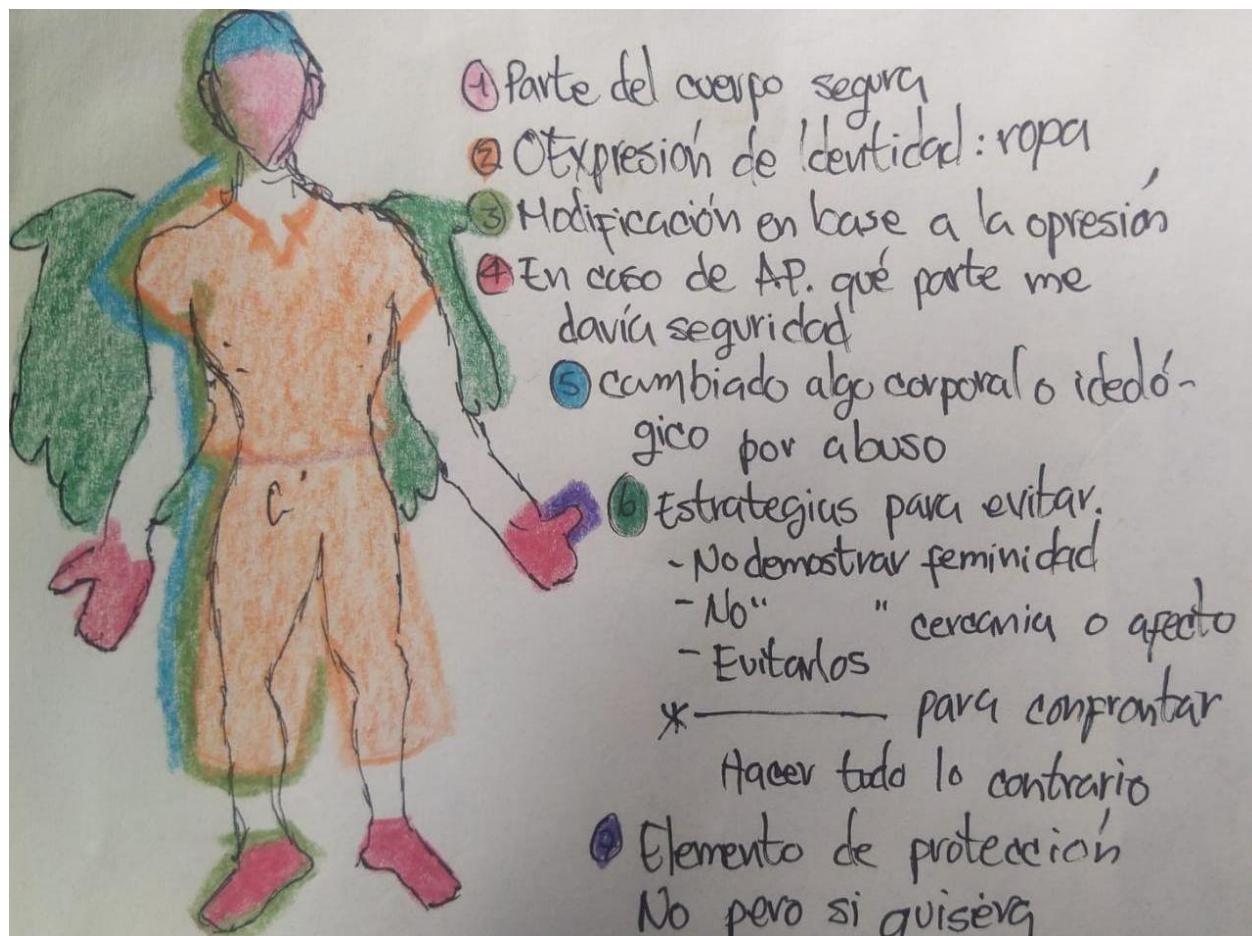 1 Parte del cuerpo segura
2 OExpresión de Identidad: ropa
3 Modificación en base a la opresión
4 En caso de AP. qué parte me
davía seguridad
5 cambiado algo corporal o idedó-
gico por abuso
6 Estrategias para evitar.
- No demostrar feminidad
- No " " cercania o afecto
- Evitarlos
* ——— para confrontar
Hacer todo lo contrario
Elemento de protección
No pero si quisiéra